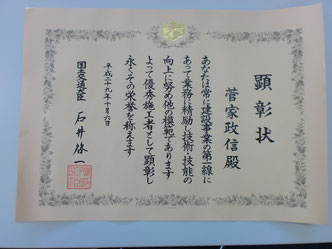 顕彰状
菅家政信殿
あなたは常に建設事業の第一線に
あって業務に精励し技術・技能の
向上に努め他の模範であります
よって優秀施工者として顕彰し
永くその栄誉を称えます
平成二十九年十月六日
国土交通大臣 石井啓一